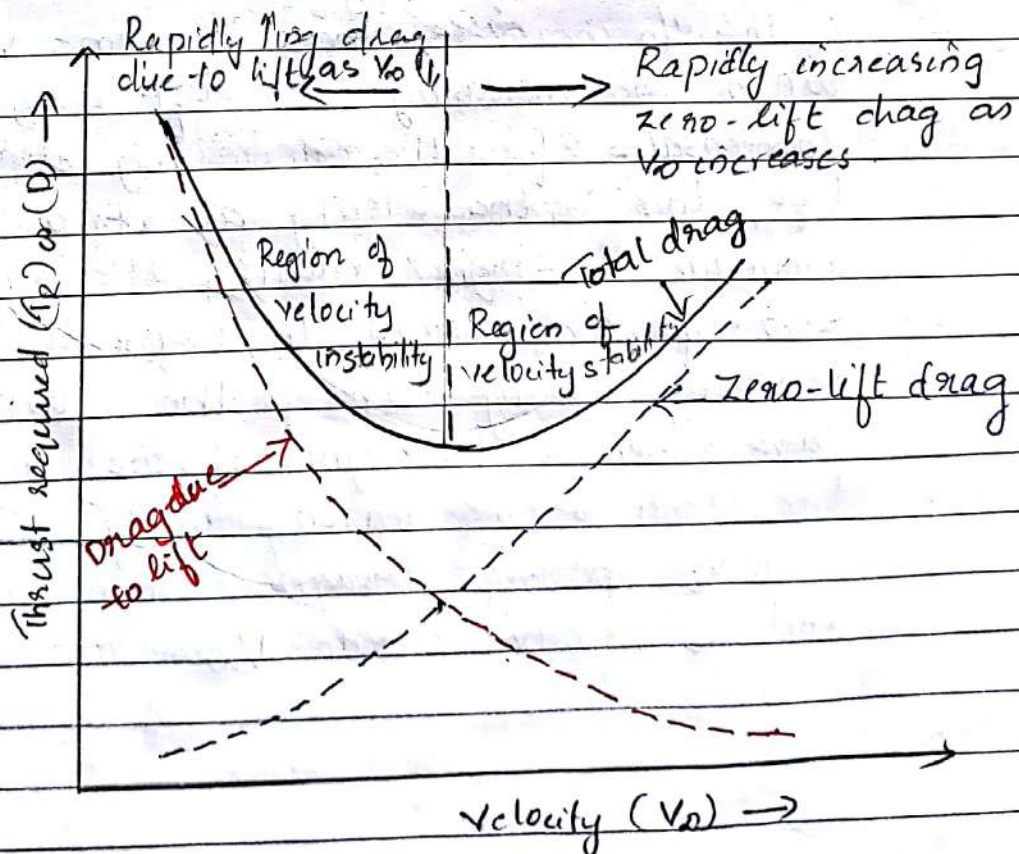 Rapidly ↑ing drag
due to lift as V∞ ↓
Rapidly increasing
zero-lift drag as
V∞ increases
Thrust required (TR) or (D) →
Region of
velocity
instability
Region of
velocity stability
Total drag
zero-lift drag
Drag due
to lift
Velocity (V∞) →